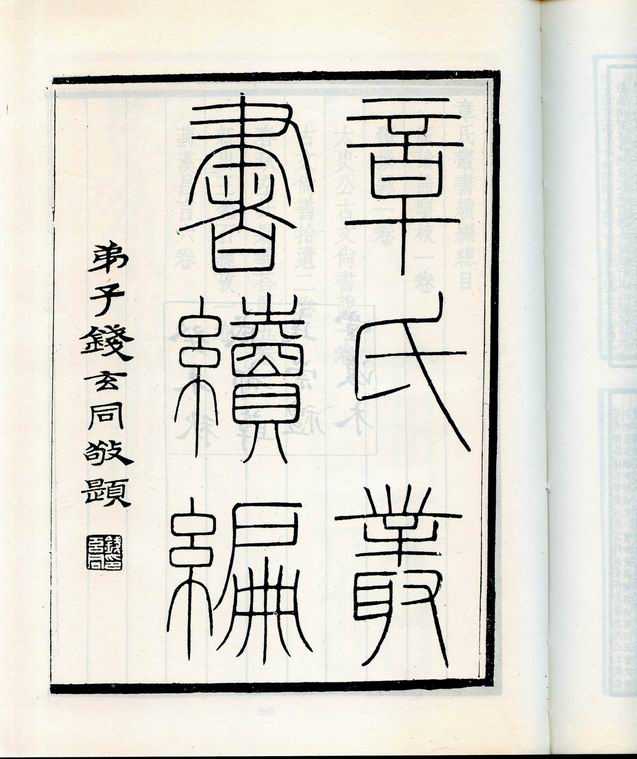 章氏叢
書續編
弟子錢玄同敬題
錢玄同